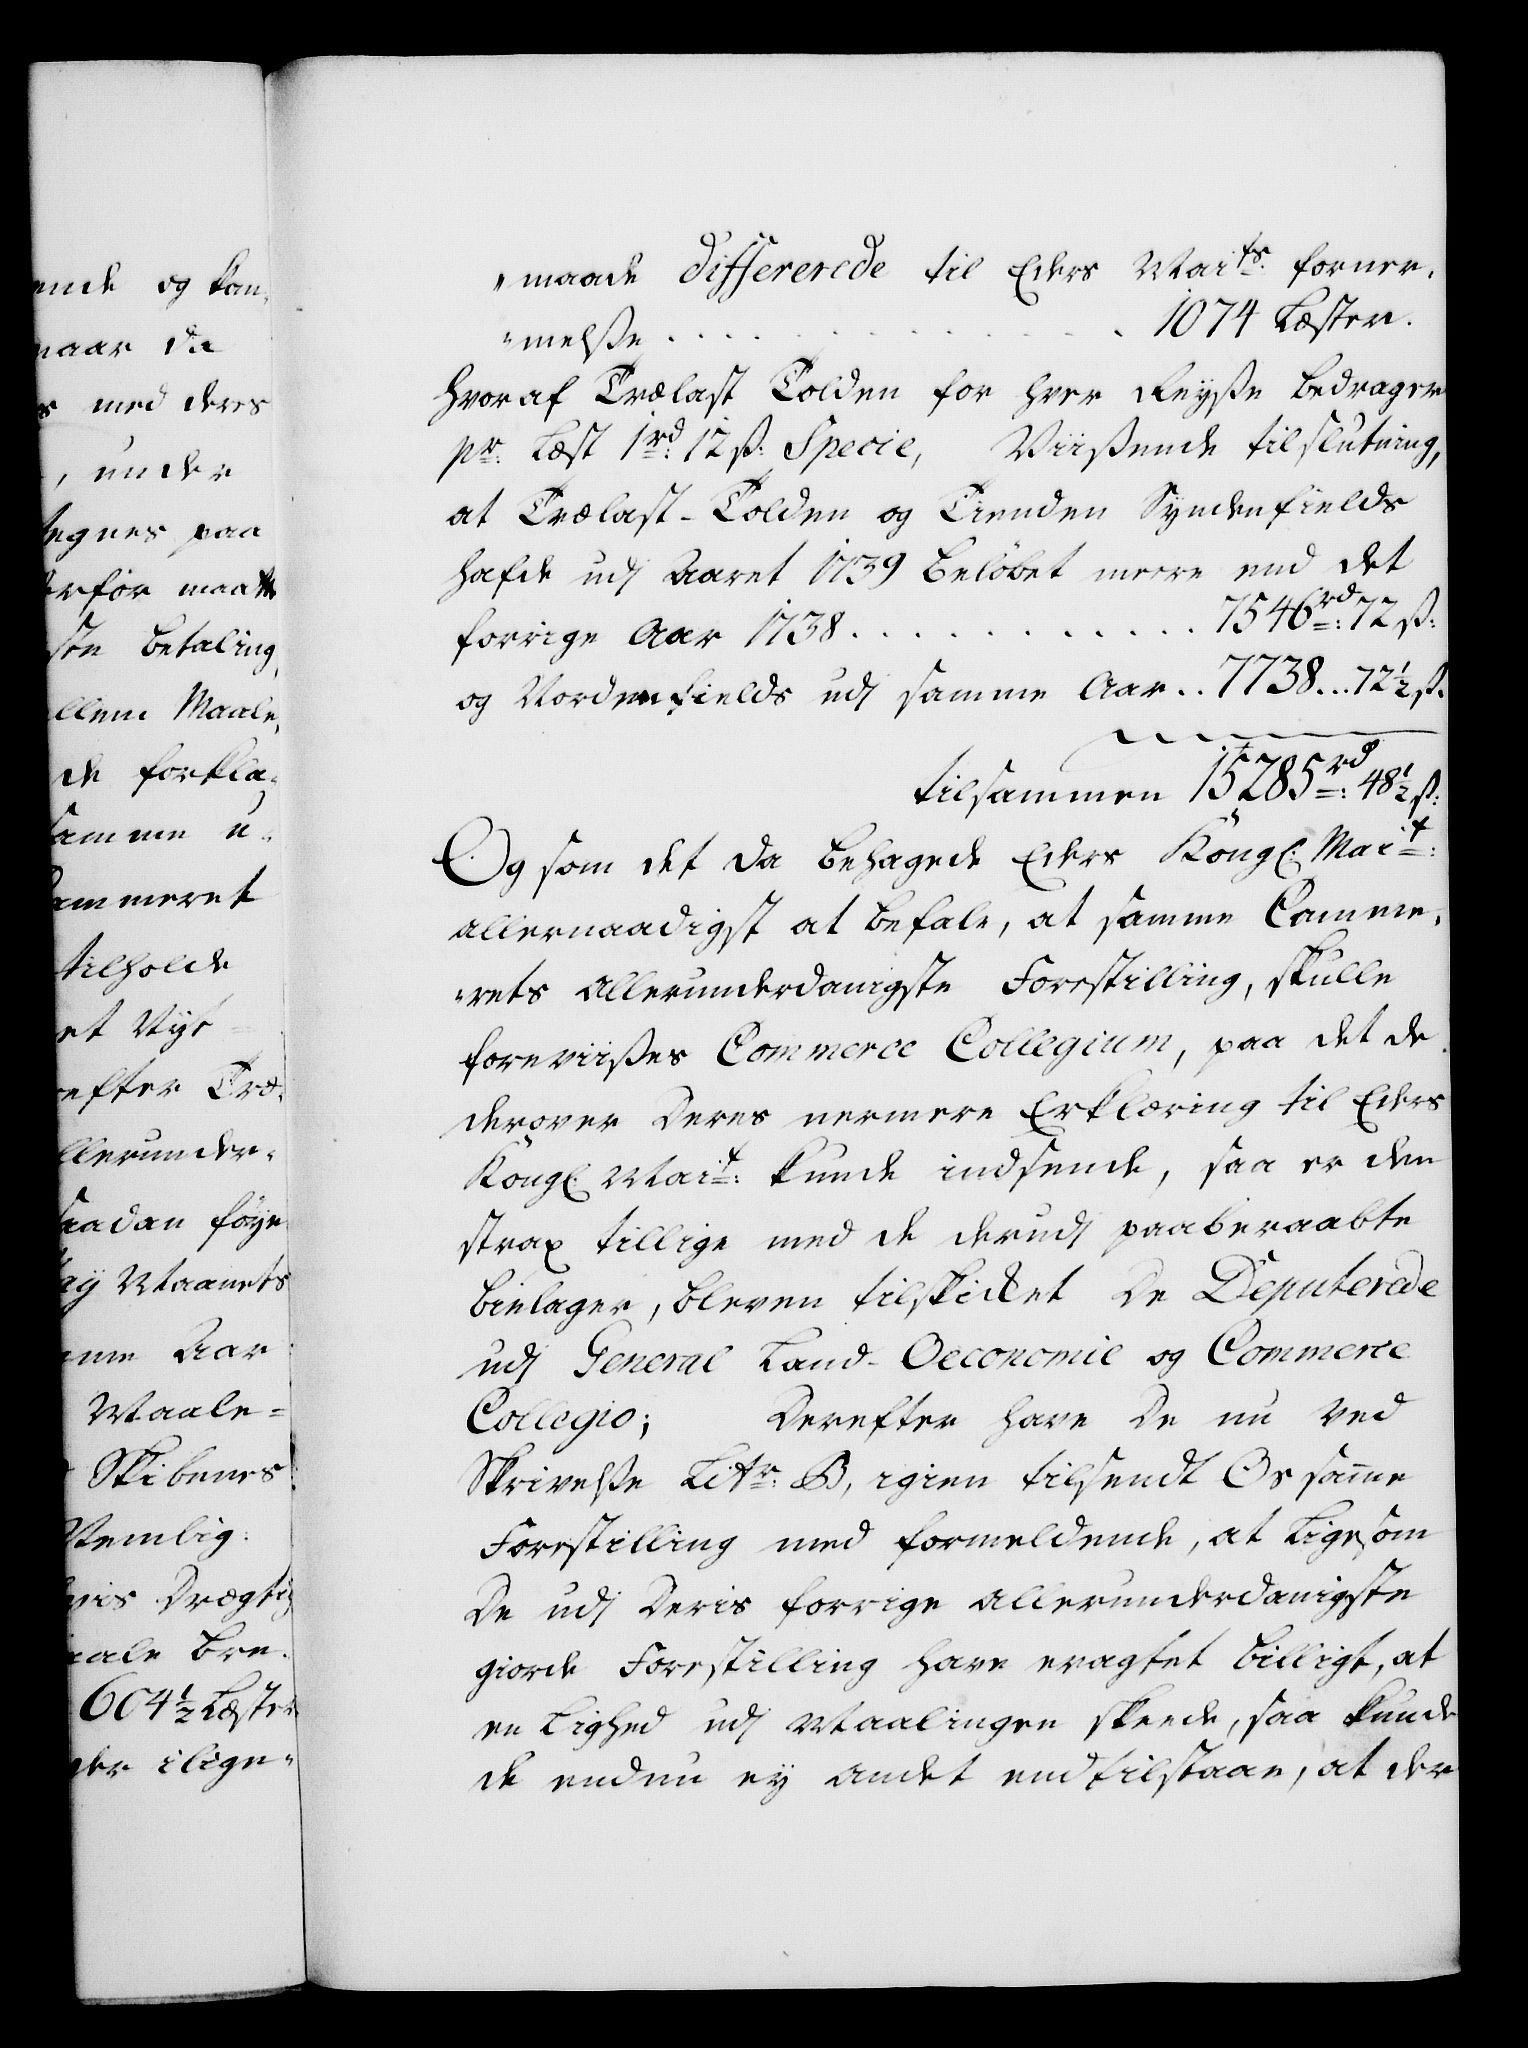 ende og kan-
naar da
s med deres
, under
tegnes paa
erfor maatte
ste betaling,
llem Maale,
de forkla-
samme u-
ammeret
tilholde
et Nyt
efter Træ-
llerunder-
saadan føye
ay Maanets
mme Aar
Maale-
Skibenes
Nemlig:
vis Drægtig
aale bre-
604½ Læster
der i lige-
"maade differerede til Eders Maits: forner-
"melsse . . . . . . . . . . . . 1074 Læster.
hvoraf Trælast Tolden for hver Reysse bedrager
pr: Læst 1rd: 12 ß: Specie, Viissende tilslutning,
at Trælast-Tolden og Tienden Syndenfields
hafde udj Aaret 1739 beløbet meere end det
forrige Aar 1738 . . . . . . . . . . . . . 7546rd: 72 ß:
og Nordenfields udj samme Aar . . 7738 . . . 72½ ß.
tilsammen 15285rd: 48½ ß:
Og som det da behagede Eders Köngl: Mait:
allernaadigst at befale, at samme Camme-
"rets allerunderdanigste Forestilling, skulle
foreviisses Commerce Collegium, paa det de
derover deres nermere Erklæring til Eders
Köngl: Mait: kunde indsende, saa er den
strax tillige med de derudj paaberaabte
bielager, bleven tilskicket De Deputerede
udj General Land-Oeconomie og Commerce
Collegio; Derefter have De nu ved
Skrivelsse Litr: B, igien tilsendt Os samme
Forestilling med formeldende, at ligesom
De udj Deris forrige allerunderdanigste
giorde Forestilling have eragtet billigt, at
en Lighed udj Maalingen skeede, saa kunde
de endnu ey andet end tilstaae, at der